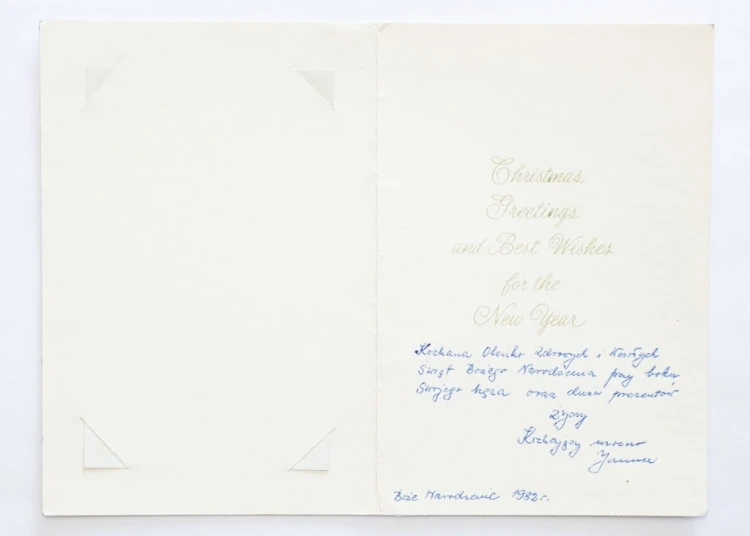 Christmas
Greetings
and Best Wishes
for the
New Year
Kochana Olenko zdrowych i Wesołych
Świąt Bożego Narodzenia przy boku
Swojego męża oraz dużo prezentów
Życzy
Kochający mocno
Janusz
Boże Narodzenie 1982 r.